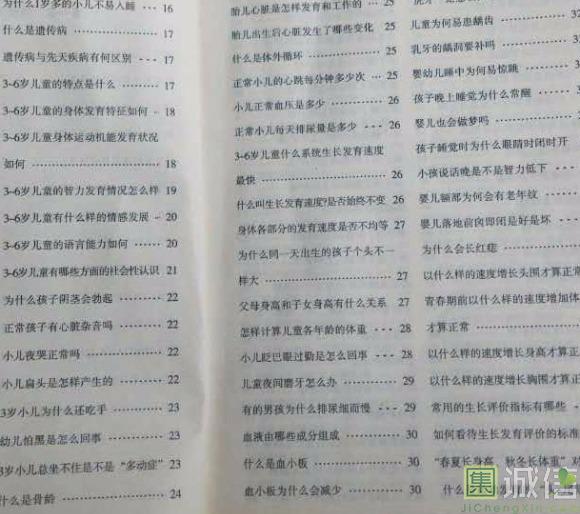 为什么1岁多的小儿不易入睡 ·· 16
什么是遗传病 ············ 17
遗传病与先天疾病有何区别 ··· 17
3~6岁儿童的特点是什么 ···· 17
3~6岁儿童的身体发育特征如何 ·· 18
3~6岁儿童身体运动机能发育状况
如何 ················ 18
3~6岁儿童的智力发育情况怎么样 19
3~6岁儿童有什么样的情感发展 ·· 20
3~6岁儿童的语言能力如何 ···· 20
3~6岁儿童有哪些方面的社会性认识 21
为什么孩子阴茎会勃起 ······ 22
正常孩子有心脏杂音吗 ······ 22
小儿夜哭正常吗 ·········· 22
小儿扁头是怎样产生的 ······ 22
3岁小儿为什么还吃手 ······ 23
幼儿怕黑是怎么回事 ······· 23
3岁小儿总坐不住是不是“多动症” 23
什么是骨龄 ············ 24
胎儿心脏是怎样发育和工作的 ·· 25
胎儿出生后心脏发生了哪些变化 25
什么是体外循环 ·········· 25
正常小儿的心跳每分钟多少次 ·· 25
小儿正常血压是多少 ······· 26
正常小儿每天排尿量是多少 ··· 26
3~6岁儿童什么系统生长发育速度
最快 ················ 26
什么叫生长发育速度?是否始终不变 26
身体各部分的发育速度是否不均等 27
为什么同一天出生的孩子个头不一
样大 ················ 27
父母身高和子女身高有什么关系 27
怎样计算儿童各年龄的体重 ··· 28
小儿眨巴眼过勤是怎么回事 ··· 28
儿童夜间磨牙怎么办 ······· 29
有的男孩为什么排尿细而慢 ··· 29
血液由哪些成分组成 ······· 30
什么是血小板 ··········· 30
血小板为什么会减少 ······· 30
儿童为何易患龋齿
乳牙的龋洞要补吗
婴幼儿睡中为何易惊跳
孩子晚上睡觉为什么常醒
婴儿也会做梦吗
孩子睡觉时为什么眼睛时闭时开
小孩说话晚是不是智力低下
婴儿脚部为何会有老年纹
婴儿落地前囟即闭是好是坏
为什么会长红痣
以什么样的速度增长头围才算正常
青春期前以什么样的速度增加体
才算正常
以什么样的速度增长身高才算正
以什么样的速度增长胸围才算正
常用的生长评价指标有哪些
如何看待生长发育评价的标准
“春夏长身高,秋冬长体重”对
集 诚信
JiChengXin.com